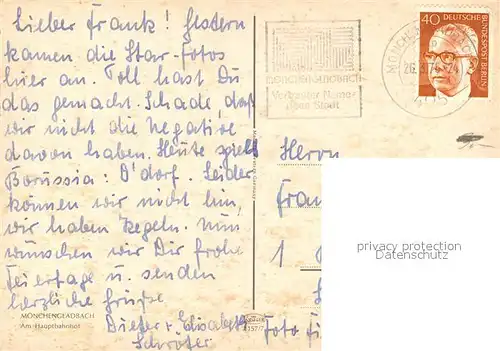 Lieber Frank! Gestern
kamen die Star-Fotos
hier an. Toll hast Du
das gemacht. Schade, daß
wir nicht die Negative
davon haben. Heute spielt
Borussia : D'dorf. Leider
können wir nicht hin,
wir haben Kegeln. Nun
wünschen wir Dir frohe
Feiertage u. senden
herzliche Grüße
Dieter + Elisabeth
Schröter
MÖNCHENGLADBACH
Am Hauptbahnhof
MÖNCHENGLADBACH
Name
Stadt
40 DEUTSCHE BUNDESPOST BERLIN
Herrn
Fran
1
Foto
privacy protection
Datenschutz